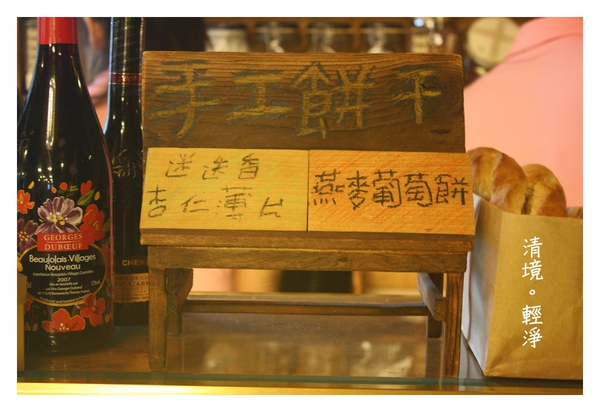 手工餅干
迷迭香
杏仁薄片
燕麥葡萄餅
GEORGES
DUBŒUF
Beaujolais-Villages
Nouveau
2007
清境。輕淨